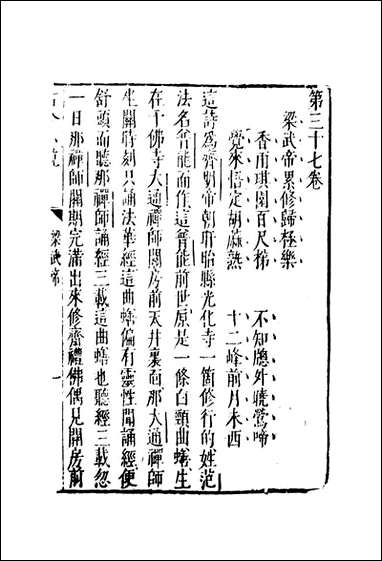 第三十七卷
梁武帝累修歸極樂
香雨琪園百尺梯　不知牕外曉鶯啼
覺來悟定胡麻熟　十二峰前月未西
這詩爲齊明帝朝盱眙縣光化寺一箇修行的姓范
法名普能而作這普能前世原是一條白頸曲蟮生
在千佛寺大通禪師關房前天井裏面那大通禪師
坐關時刻只誦法華經這曲蟮偏有靈性聞誦經便
舒頭而聽那禪師誦經三載這曲蟮也聽經三載忽
一日那禪師關期完滿出來修齋禮佛偶見關房前
梁武帝
一